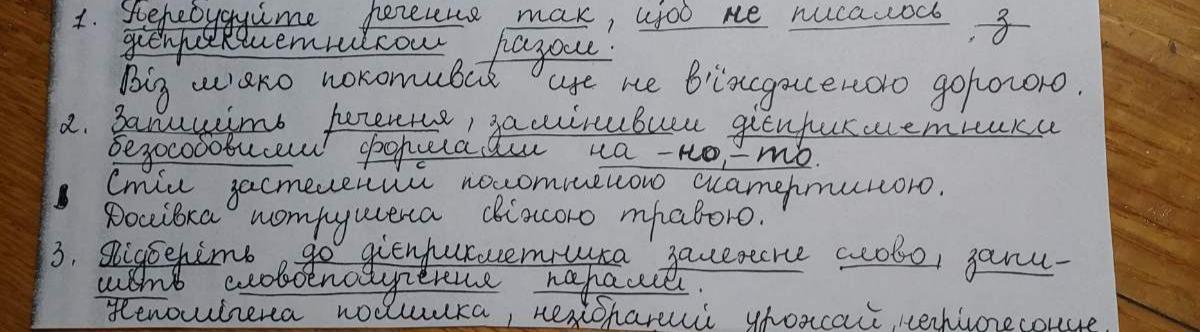 1. Перебудуйте речення так, щоб не писалось з
дієприкметником разом.
Віз м'яко покотився ще не в'їждженою дорогою.
2. Запишіть речення, замінивши дієприкметники
безособовими формами на -но, -то.
Стіл застелений полотняною скатертиною.
Долівка потрушена свіжою травою.
3. Підберіть до дієприкметника залежне слово, запи-
шіть словосполучення парами.
Непомічена помилка, незібраний урожай,